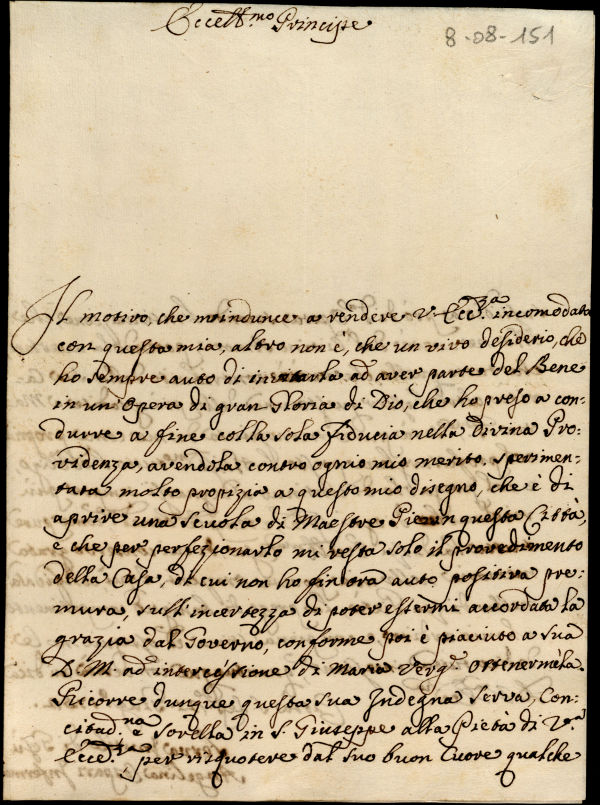 Eccell.mo Principe
8-08-151
Il motivo, che m'indunce a rendere V. Ecc.za incomodata
con questa mia, altro non è, che un vivo desiderio, che
ho sempre auto di invitarla ad aver parte del Bene
in un'Opera di gran Gloria di Dio, che ho preso a con-
durre a fine colla sola Fiducia nella Divina Pro-
videnza, avendola contro ogni mio merito sperimen-
tata molto propizia a questo mio disegno, che è di
aprire una Scuola di Maestre Pie in questa Città,
e che per perfezionarlo mi resta solo il provedimento
della Casa, di cui non ho fin'ora auto positiva pre-
mura, sull'incertezza di poter essermi accordata la
grazia dal Governo, conforme poi è piaciuto a sua
D. M. ad intercessione di Maria Verg.e ottenermela.
Ricorre dunque questa sua Indegna serva, Con-
citad.na e Sorella in S. Giuseppe alla Pietà di V.a
Ecced.za per risquotere dal suo buon Cuore qualche